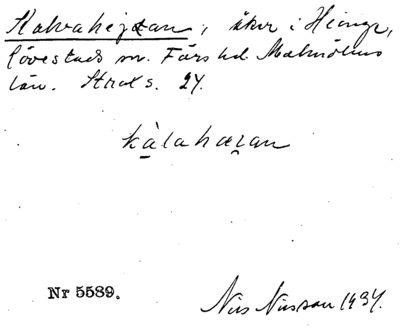 Kalvahejdan, åker i Hinge,
Lövestads sn. Färs hd. Malmöhus
län. Strax s. 24.
kàlahaɀan
Nr 5589.
Nils Nilsson 1934.